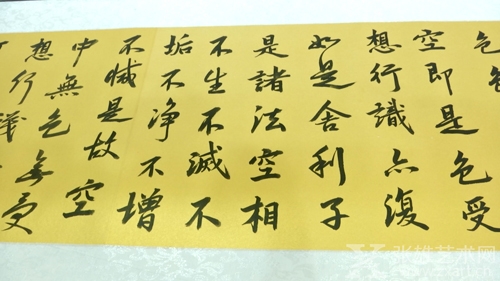 空即是色受
想行識亦復
如是舍利子
是諸法空相
不生不滅不
垢不净不增
不減是故空
中無色無受
想行識
张雄艺术网